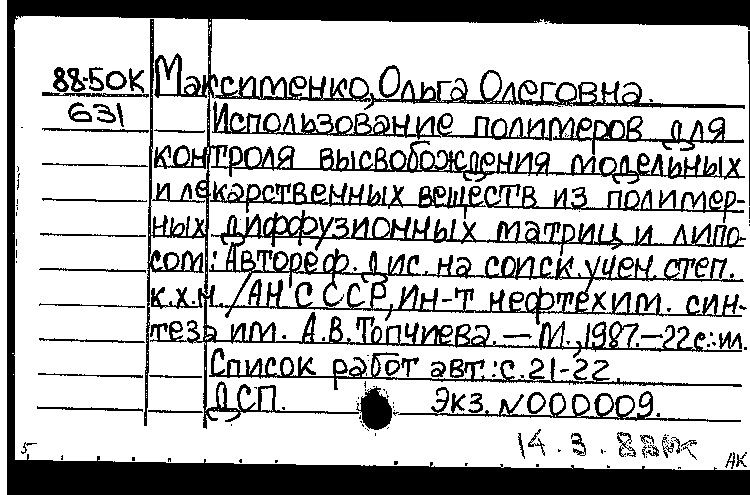 88-50К Максименко, Ольга Олеговна.
631 Использование полимеров для
контроля высвобождения модельных
и лекарственных веществ из полимер-
ных диффузионных матриц и липо-
сом: Автореф. дис. на соиск. учен. степ.
к.х.н. /АН СССР, Ин-т нефтехим. син-
теза им. А.В. Топчиева. — М., 1987. — 22 с.: ил.
Список работ авт.: с. 21-22.
ДСП. Экз. N000009.
14.3.88
5
АК